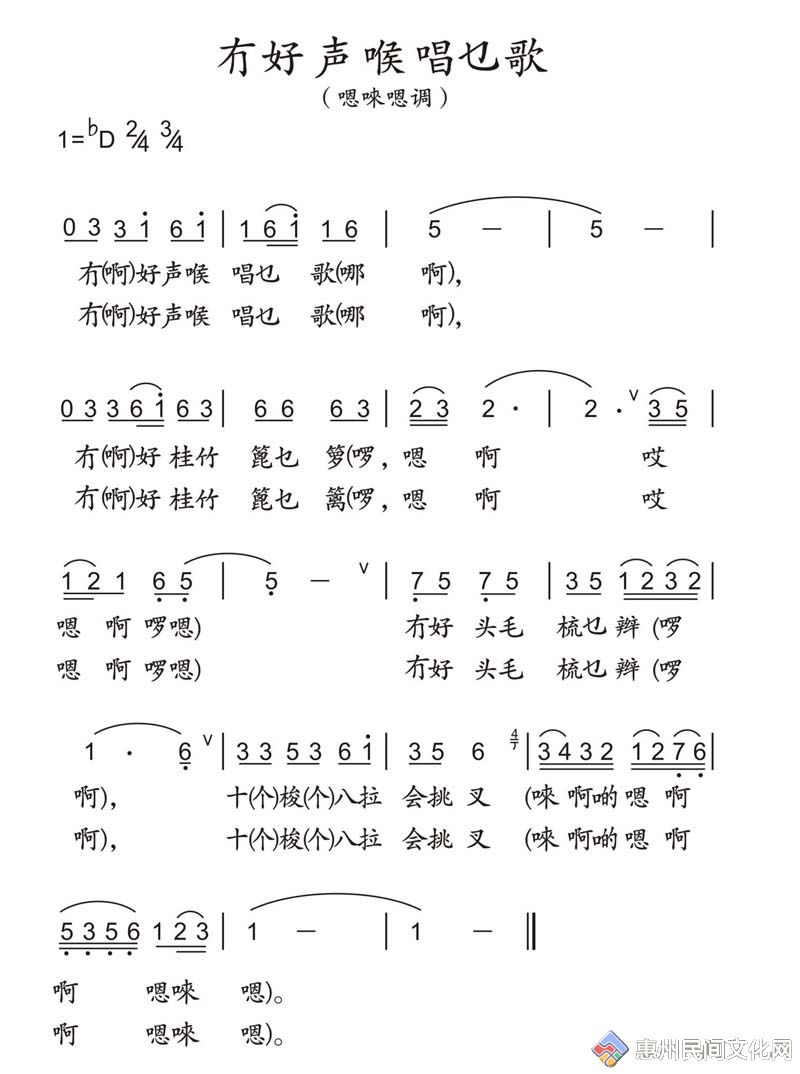 冇好声喉唱乜歌
（嗯唻嗯调）
1=♭D 2/4 3/4
0 3 3 1̇ 6 1̇ | 1 6 1̇ 1 6 | 5 — | 5 — |
冇(啊)好声喉 唱乜 歌(哪 啊),
冇(啊)好声喉 唱乜 歌(哪 啊),
0 3 3 6 1̇ 6 3 | 6 6 6 3 | 2 3 2 · | 2 · ∨ 3 5 |
冇(啊)好桂竹 篦乜 箩(啰, 嗯 啊 哎
冇(啊)好桂竹 篦乜 篱(啰, 嗯 啊 哎
1 2 1 6̣ 5̣ | 5̣ — ∨ | 7̣ 5 7̣ 5 | 3 5 1 2 3 2 |
嗯 啊 啰嗯) 冇好 头毛 梳乜 辫 (啰
嗯 啊 啰嗯) 冇好 头毛 梳乜 辫 (啰
1 · 6̣ ∨ | 3 3 5 3 6 1̇ | 3 5 6 | 3 4 3 2 1 2 7̣ 6̣ |
啊), 十(个)梭(个)八拉 会挑 叉 (唻 啊啲嗯 啊
啊), 十(个)梭(个)八拉 会挑 叉 (唻 啊啲嗯 啊
5̣ 3̣ 5̣ 6̣ 1 2 3 | 1 — | 1 — ‖
啊 嗯唻 嗯)。
啊 嗯唻 嗯)。
惠州民间文化网